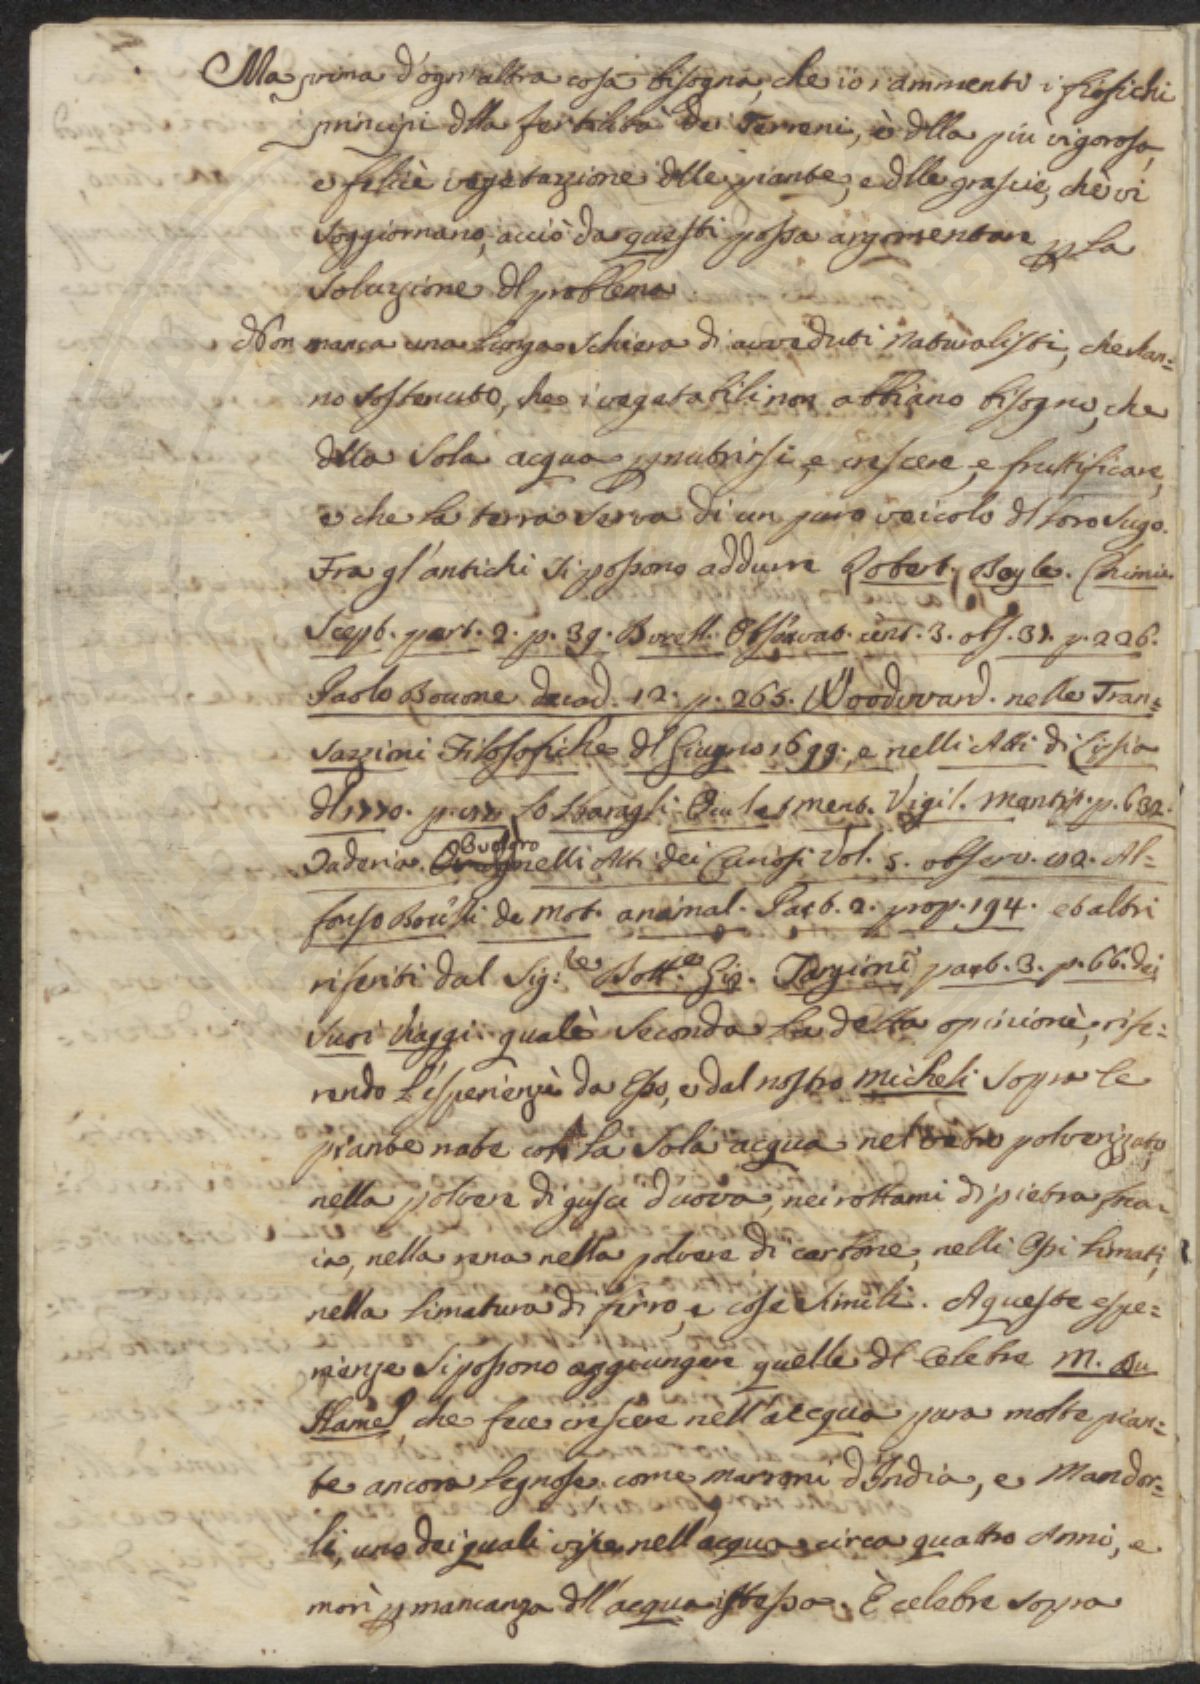 Ma prima d'ogn'altra cosa bisogna, che io rammenti i fisichi
principi dlla fertilità de Terreni, è dlla più vigorosa,
e felice vegetazzione dlle piante, e dlle grascie, che vi
soggiornano, acciò da questi possa argomentare p la
soluzione dl problema.
Non manca una longa schiera di avveduti Naturalisti, che han=
no sostenuto, che i vegetabili non abbiano bisogno, che
dlla sola acqua p nutrirsi, e crescere, e fruttificare,
e che la terra serva di un puro veicolo dl loro sugo.
Fra gl'antichi si possono addurre Robert. Boyle. Chimic.
Scept. part. 2. p. 39. Borell. Observat. cent. 3. obs. 31. p. 226.
Paolo Bocone decad. 12. p. 265. Woodward. nelle Tran=
sazzioni Filosofiche dl Giugno 1699., e nelli Atti di Lipsia
dl lo Sbaragli. Ocul. et ment. Vigil. mantis. p. 632.
nelli Atti dei Curiosi Vol. 5. observ. 92. Al=
fonso Borelli de mot. animal. Part. 2. prop. 194. et altri
riferiti dal Sig:re Dott.re Gio. Targioni part. 3. p. 66. dei
suoi Viaggi. quale seconda la detta opinione, rife=
rendo l'esperienze da Esso, e dal nostro Micheli sopra le
piante nate con la sola acqua nel vetro polverizzato,
nella polvere di gusci d'uova, nei rottami di pietra
nella rena nella polvere di carbone, nelli Ossi limati,
nella limatura di ferro, e cose simili. A queste espe=
rienze si possono aggiungere quelle dl Celebre M. Du
Hamel, che fece crescere nell'accqua pura molte pian=
te ancora legnose come marroni d'India, e Mandor=
li, uno dei quali visse nell'acqua circa quattro Anni, e
morì p mancanza dll'acqua istessa. È celebre sopra